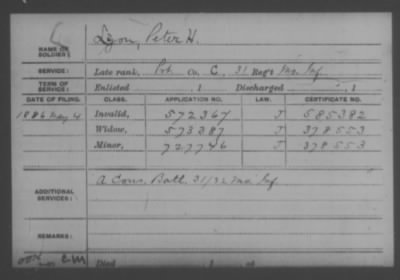 NAME OF SOLDIER: Lyon, Peter H.
SERVICE: Late rank, Pvt Co. C, 31 Reg't Mo. Inf.
TERM OF SERVICE: Enlisted , 1 Discharged , 1
DATE OF FILING. CLASS. APPLICATION NO. LAW. CERTIFICATE NO.
1886 May 4 Invalid, 572367 J 585382
Widow, 573387 J 378553
Minor, 727746 J 378553
ADDITIONAL SERVICES: A Cons. Batt. 31/32 Mo. Inf.
REMARKS:
C.M. Died , 1 at